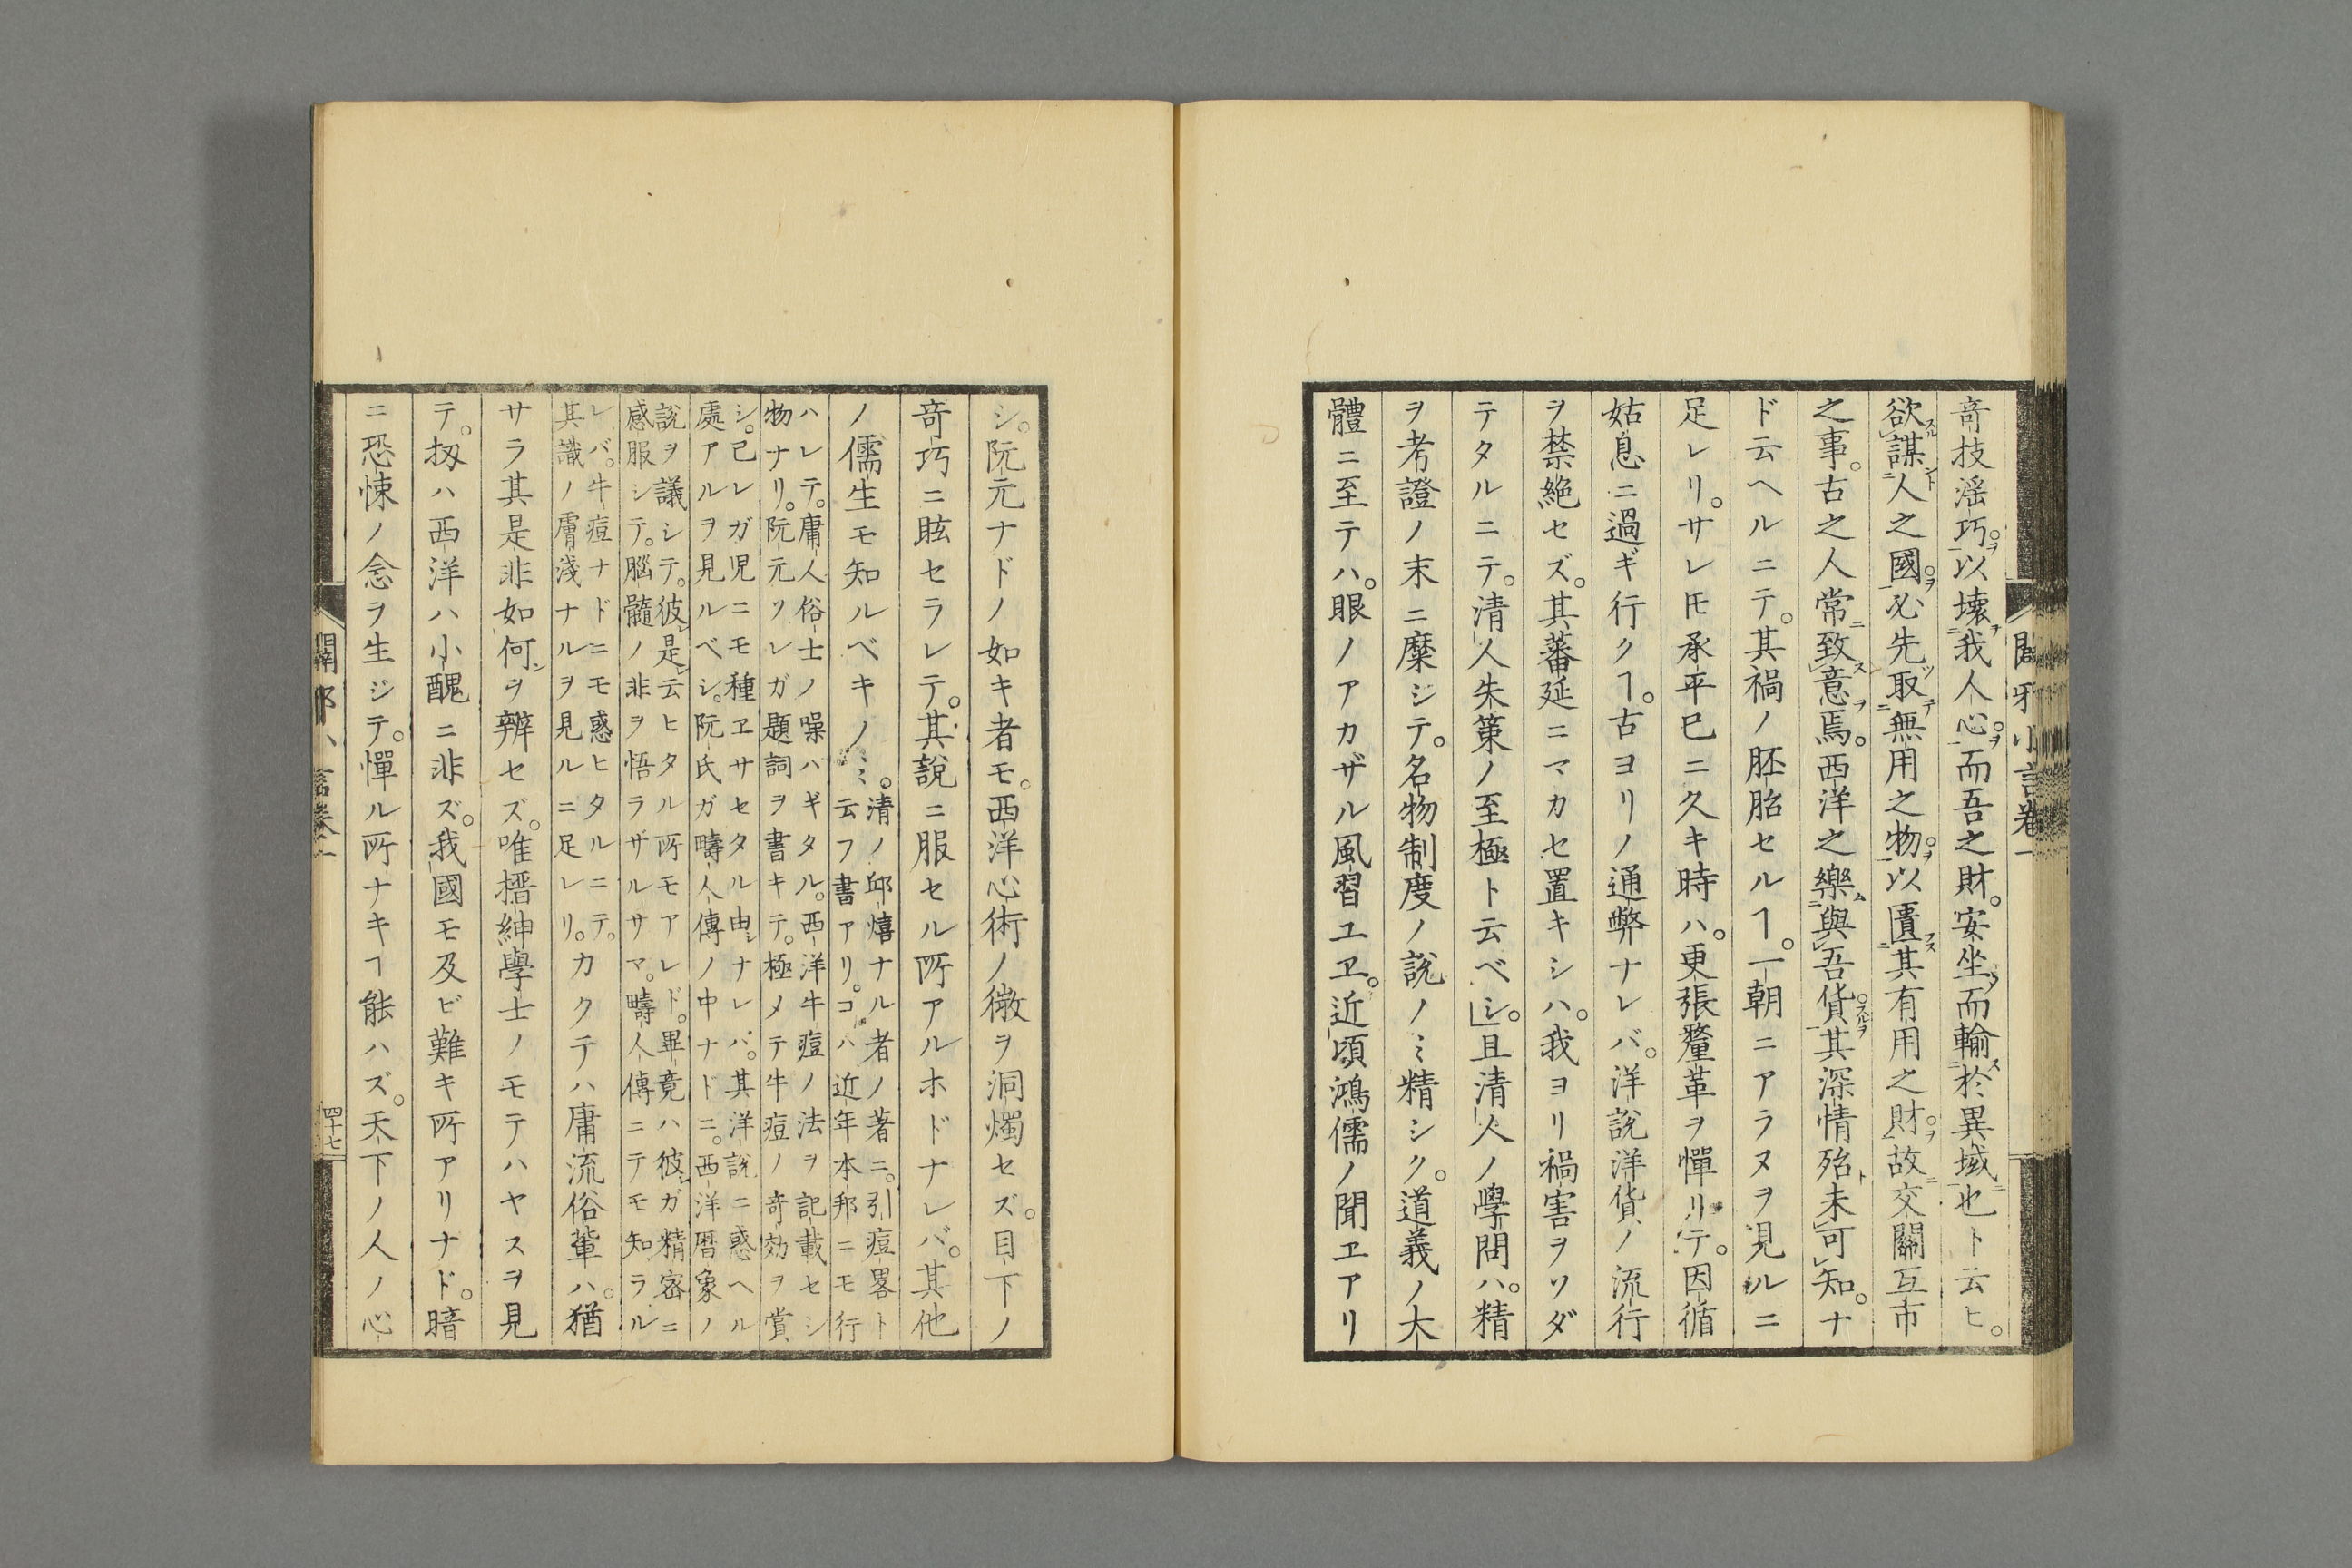 奇技淫巧。以壞我人心。而吾之財。安坐而輸於異域也ト云ヒ。
欲謀人之國。必先取無用之物。以匱其有用之財。故交關互市
之事。古之人常致意焉。西洋之樂與吾貨。其深情殆未可知。ナ
ド云ヘルニテ。其禍ノ胚胎セルヿ。一朝ニアラヌヲ見ルニ
足レリ。サレ𪜈承平已ニ久キ時ハ。更張釐革ヲ憚リテ。因循
姑息ニ過ギ行クヿ。古ヨリノ通弊ナレバ。洋說洋貨ノ流行
ヲ禁絶セズ。其蕃延ニマカセ置キシハ。我ヨリ禍害ヲソダ
テタルニテ。清人失策ノ至極ト云ベシ。」且清人ノ學問ハ。精
ヲ考證ノ末ニ糜シテ。名物制度ノ說ノミ精シク。道義ノ大
體ニ至テハ。眼ノアカザル風習ユヱ。近頃鴻儒ノ聞エアリ
闢邪小言卷一
シ。阮元ナドノ如キ者モ。西洋心術ノ微ヲ洞燭セズ。目下ノ
奇巧ニ眩セラレテ。其說ニ服セル所アルホドナレバ。其他
ノ儒生モ知ルベキノミ。清ノ邱熺ナル者ノ著ニ。引痘畧ト
云フ書アリ。コハ近年本邦ニモ行
ハレテ。庸人俗士ノ噪ハギタル。西洋牛痘ノ法ヲ記載セシ
物ナリ。阮元ソレガ題詞ヲ書キテ。極メテ牛痘ノ奇効ヲ賞
シ。己レガ児ニモ種ヱサセタル由ナレバ。其洋說ニ惑ヘル
處アルヲ見ルベシ。阮氏ガ疇人傳ノ中ナドニ。西洋暦象ノ
說ヲ議シテ。彼是云ヒタル所モアレド。畢竟ハ彼ガ精密ニ
感服シテ。腦髓ノ非ヲ悟ラザルサマ。疇人傳ニテモ知ラル
レバ。牛痘ナドニモ惑ヒタルニテ。
其識ノ膚淺ナルヲ見ルニ足レリ。カクテハ庸流俗輩ハ。猶
サラ其是非如何ヲ辨セズ。唯搢紳學士ノモテハヤスヲ見
テ。扨ハ西洋ハ小醜ニ非ズ。我國モ及ビ難キ所アリナド。暗
ニ恐悚ノ念ヲ生ジテ。憚ル所ナキヿ能ハズ。天下ノ人ノ心
四十七